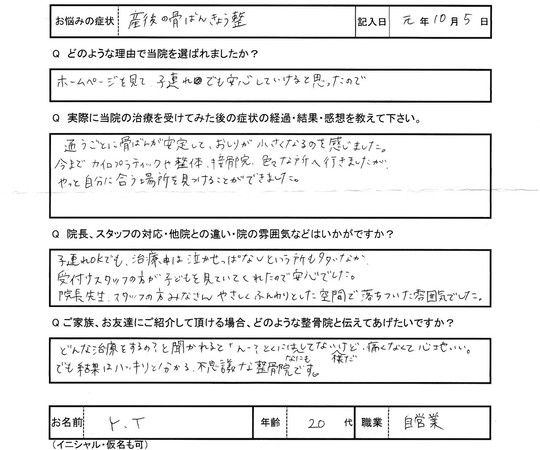 お悩みの症状 産後の骨ばんきょう整 記入日 元年10月5日
Q どのような理由で当院を選ばれましたか？
ホームページを見て、子連れでも安心していけると思ったので
Q 実際に当院の治療を受けてみた後の症状の経過・結果・感想を教えて下さい。
通うごとに骨ばんが安定して、おしりが小さくなるのを感じました。
今まで カイロプラティックや整体、接骨院、色々な所へ行きましたが、
やっと自分に合う場所を見つけることができました。
Q 院長、スタッフの対応・他院との違い・院の雰囲気などはいかがですか？
子連れOKでも、治療中は泣かせっぱなしという所も多いなか、
受付けスタッフの方が子どもを見ていてくれたので安心でした。
院長先生、スタッフの方みなさん やさしくふんわりとした空間で落ちついた雰囲気でした。
Q ご家族、お友達にご紹介して頂ける場合、どのような整骨院と伝えてあげたいですか？
どんな治療をするの？と聞かれると「んー？とくにはしてないけど、痛くなくて心地いい。
でも結果はハッキリと分かる、不思議な整骨院です。
なにも 様だ
お名前 Y.T 年齢 20代 職業 自営業
(イニシャル・仮名も可)